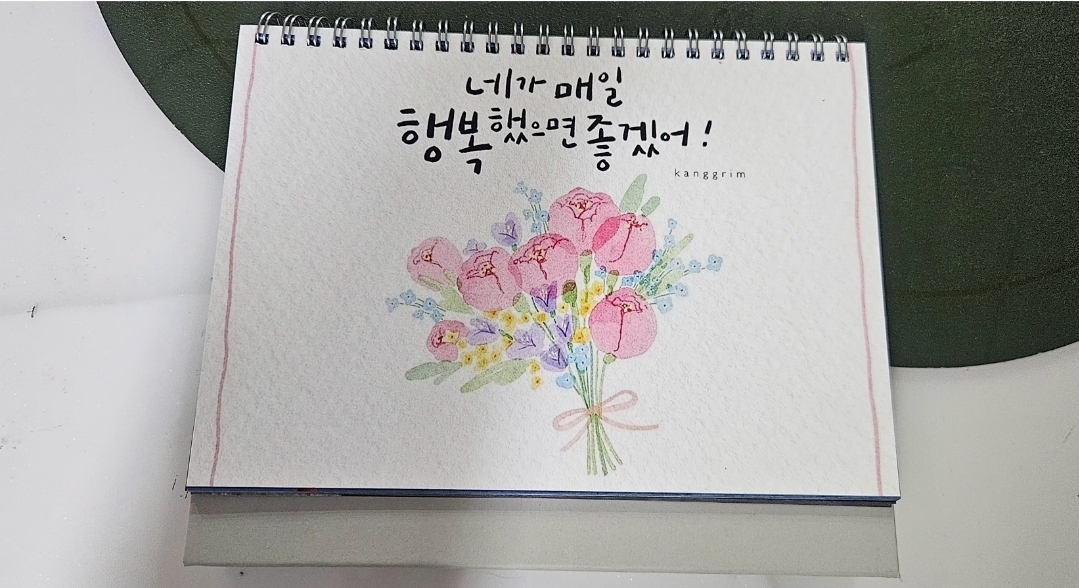 네가 매일
행복했으면 좋겠어!
kanggrim